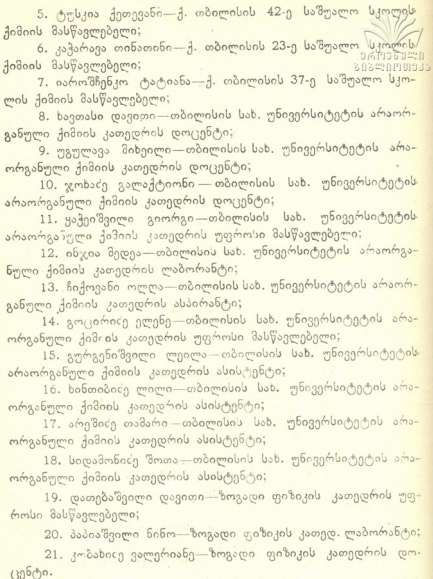 5. ტუსკია ქეთევანი—ქ. თბილისის 42-ე საშუალო სკოლის
ქიმიის მასწავლებელი;
6. კაჭარავა თინათინი—ქ. თბილისის 23-ე საშუალო სკოლის
ქიმიის მასწავლებელი;
7. იაროშჩენკო ტატიანა—ქ. თბილისის 37-ე საშუალო სკო-
ლის ქიმიის მასწავლებელი;
8. ხავთასი დავითი—თბილისის სახ. უნივერსიტეტის არაორ-
განული ქიმიის კათედრის დოცენტი;
9. უგულავა მიხეილი—თბილისის სახ. უნივერსიტეტის არა-
ორგანული ქიმიის კათედრის დოცენტი;
10. ჯობაძე გალაქტიონი—თბილისის სახ. უნივერსიტეტის
არაორგანული ქიმიის კათედრის დოცენტი;
11. ყაჭეიშვილი გიორგი—თბილისის სახ. უნივერსიტეტის
არაორგანული ქიმიის კათედრის უფროსი მასწავლებელი;
12. ინჯია მედეა—თბილისის სახ. უნივერსიტეტის არაორგა-
ნული ქიმიის კათედრის ლაბორანტი;
13. ჩიქოვანი ოლღა—თბილისის სახ. უნივერსიტეტის არაორ-
განული ქიმიის კათედრის ასპირანტი;
14. გოცირიძე ელენე—თბილისის სახ. უნივერსიტეტის არა-
ორგანული ქიმიის კათედრის უფროსი მასწავლებელი;
15. გურგენიშვილი ლეილა—თბილისის სახ. უნივერსიტეტის
არაორგანული ქიმიის კათედრის ასისტენტი;
16. ხინთიბიძე ლილი—თბილისის სახ. უნივერსიტეტის არა-
ორგანული ქიმიის კათედრის ასისტენტი;
17. არეშიძე თამარი—თბილისის სახ. უნივერსიტეტის არა-
ორგანული ქიმიის კათედრის ასისტენტი;
18. სიდამონიძე შოთა—თბილისის სახ. უნივერსიტეტის არა-
ორგანული ქიმიის კათედრის ასისტენტი;
19. დათებაშვილი დავითი—ზოგადი ფიზიკის კათედრის უფ-
როსი მასწავლებელი;
20. პაპიაშვილი ნინო—ზოგადი ფიზიკის კათედ. ლაბორანტი;
21. კობახიძე ვალერიანე—ზოგადი ფიზიკის კათედრის დო-
ცენტი.
ეროვნული
ბიბლიოთეკა